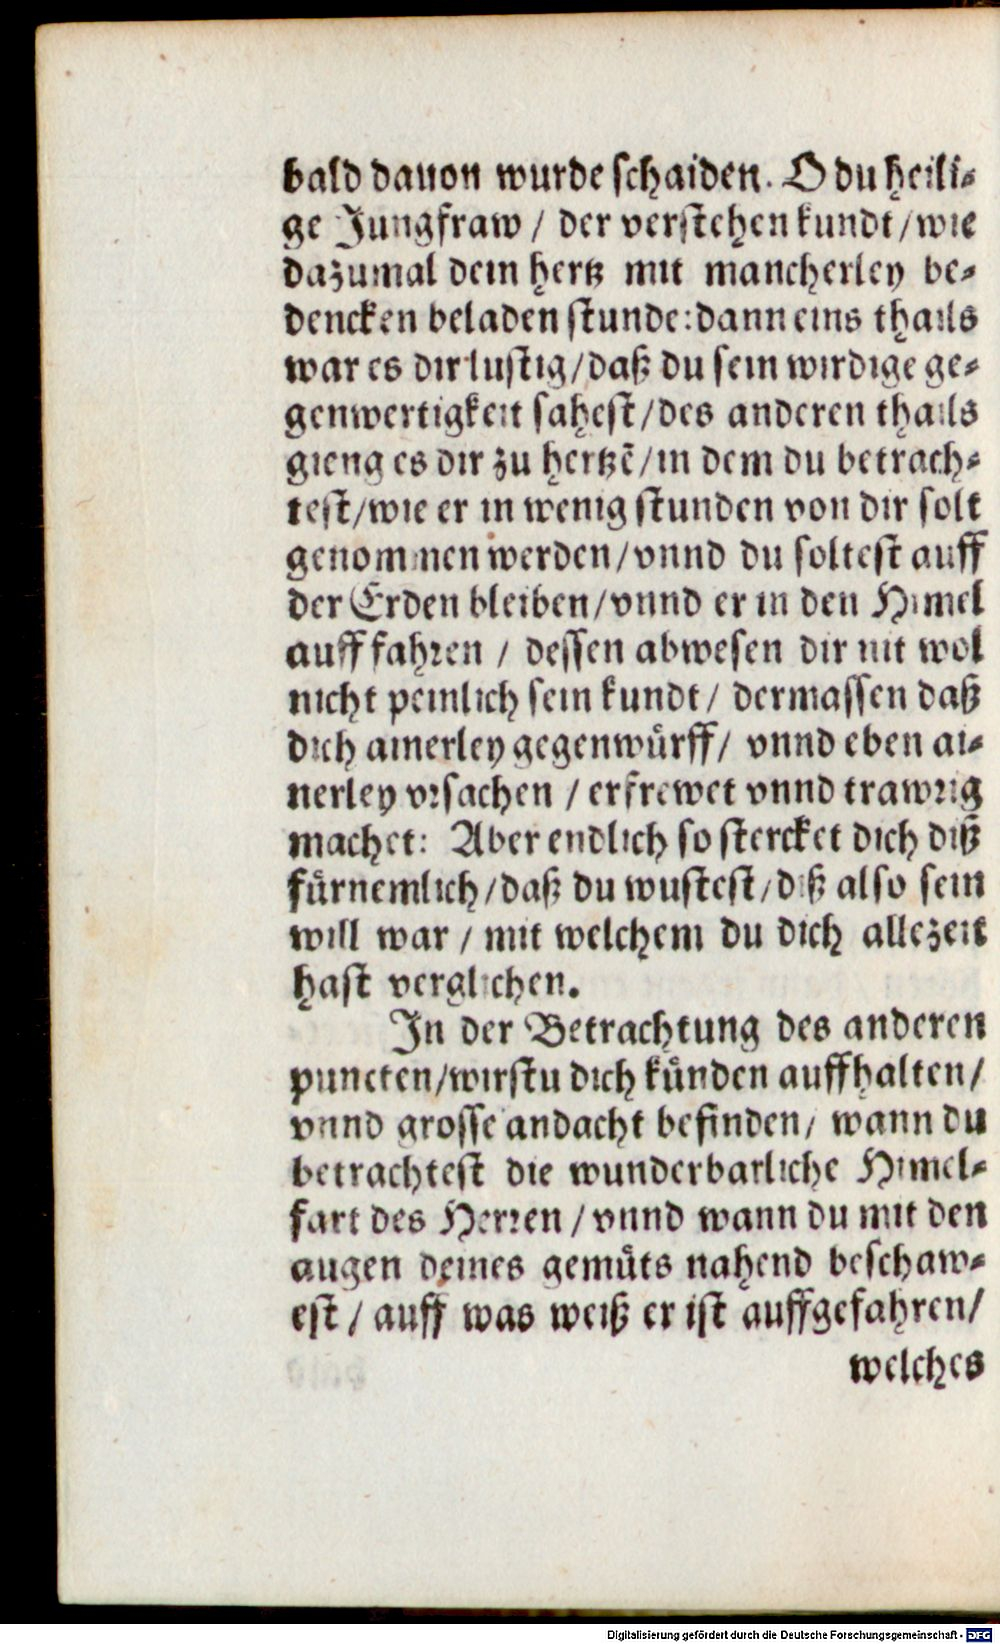 bald dauon wurde schaiden. O du heili-
ge Jungfraw / der verstehen kundt / wie
dazumal dein hertz mit mancherley be-
dencken beladen stunde: dann eins thails
war es dir lustig / daß du sein wirdige ge-
genwertigkeit sahest / des anderen thails
gieng es dir zu hertzē / in dem du betrach-
test / wie er in wenig stunden von dir solt
genommen werden / vnnd du soltest auff
der Erden bleiben / vnnd er in den Himel
auff fahren / dessen abwesen dir nit wol
nicht peinlich sein kundt / dermassen daß
dich ainerley gegenwürff / vnnd eben ai-
nerley vrsachen / erfrewet vnnd trawrig
machet: Aber endlich so stercket dich diß
fürnemlich / daß du wustest / diß also sein
will war / mit welchem du dich allezeit
hast verglichen.
In der Betrachtung des anderen
puncten / wirstu dich künden auffhalten /
vnnd grosse andacht befinden / wann du
betrachtest die wunderbarliche Himel-
fart des Herren / vnnd wann du mit den
augen deines gemüts nahend beschaw-
est / auff was weiß er ist auffgefahren /
welches
Digitalisierung gefördert durch die Deutsche Forschungsgemeinschaft - DFG